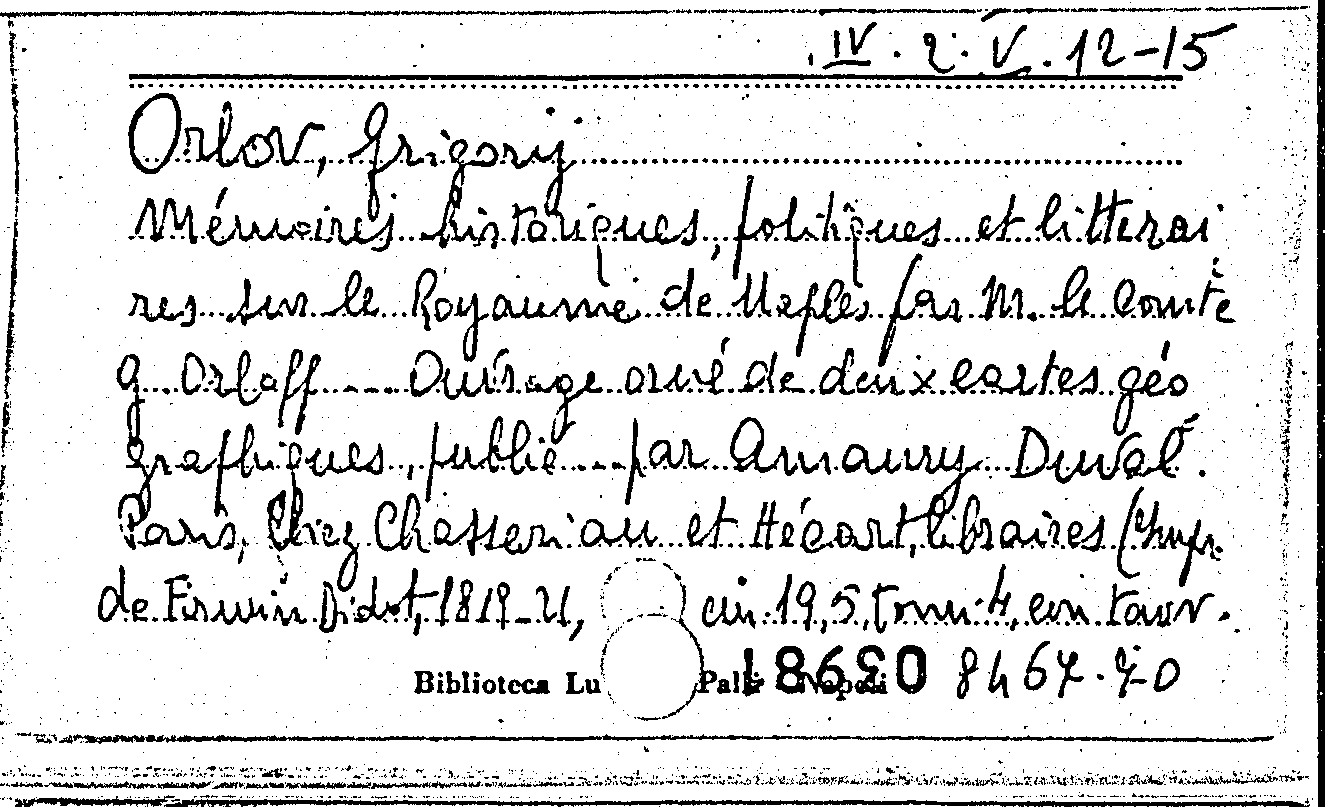 IV. 2. V. 12-15
Orlov, Grigorij
Mémoires historiques, politiques et litterai
res sur le Royaume de Naples par M. le Comte
G. Orloff ---- Ouvrage orné de deux cartes géo
graphiques, publié --- par Amaury Duval.
Paris, Chez Chasseriau et Hécart, libraires (Impr.
de Firmin Didot, 1819-21, cm. 19,5, tomi 4, con tavv.
Biblioteca Lu Palli Napoli 8467.70